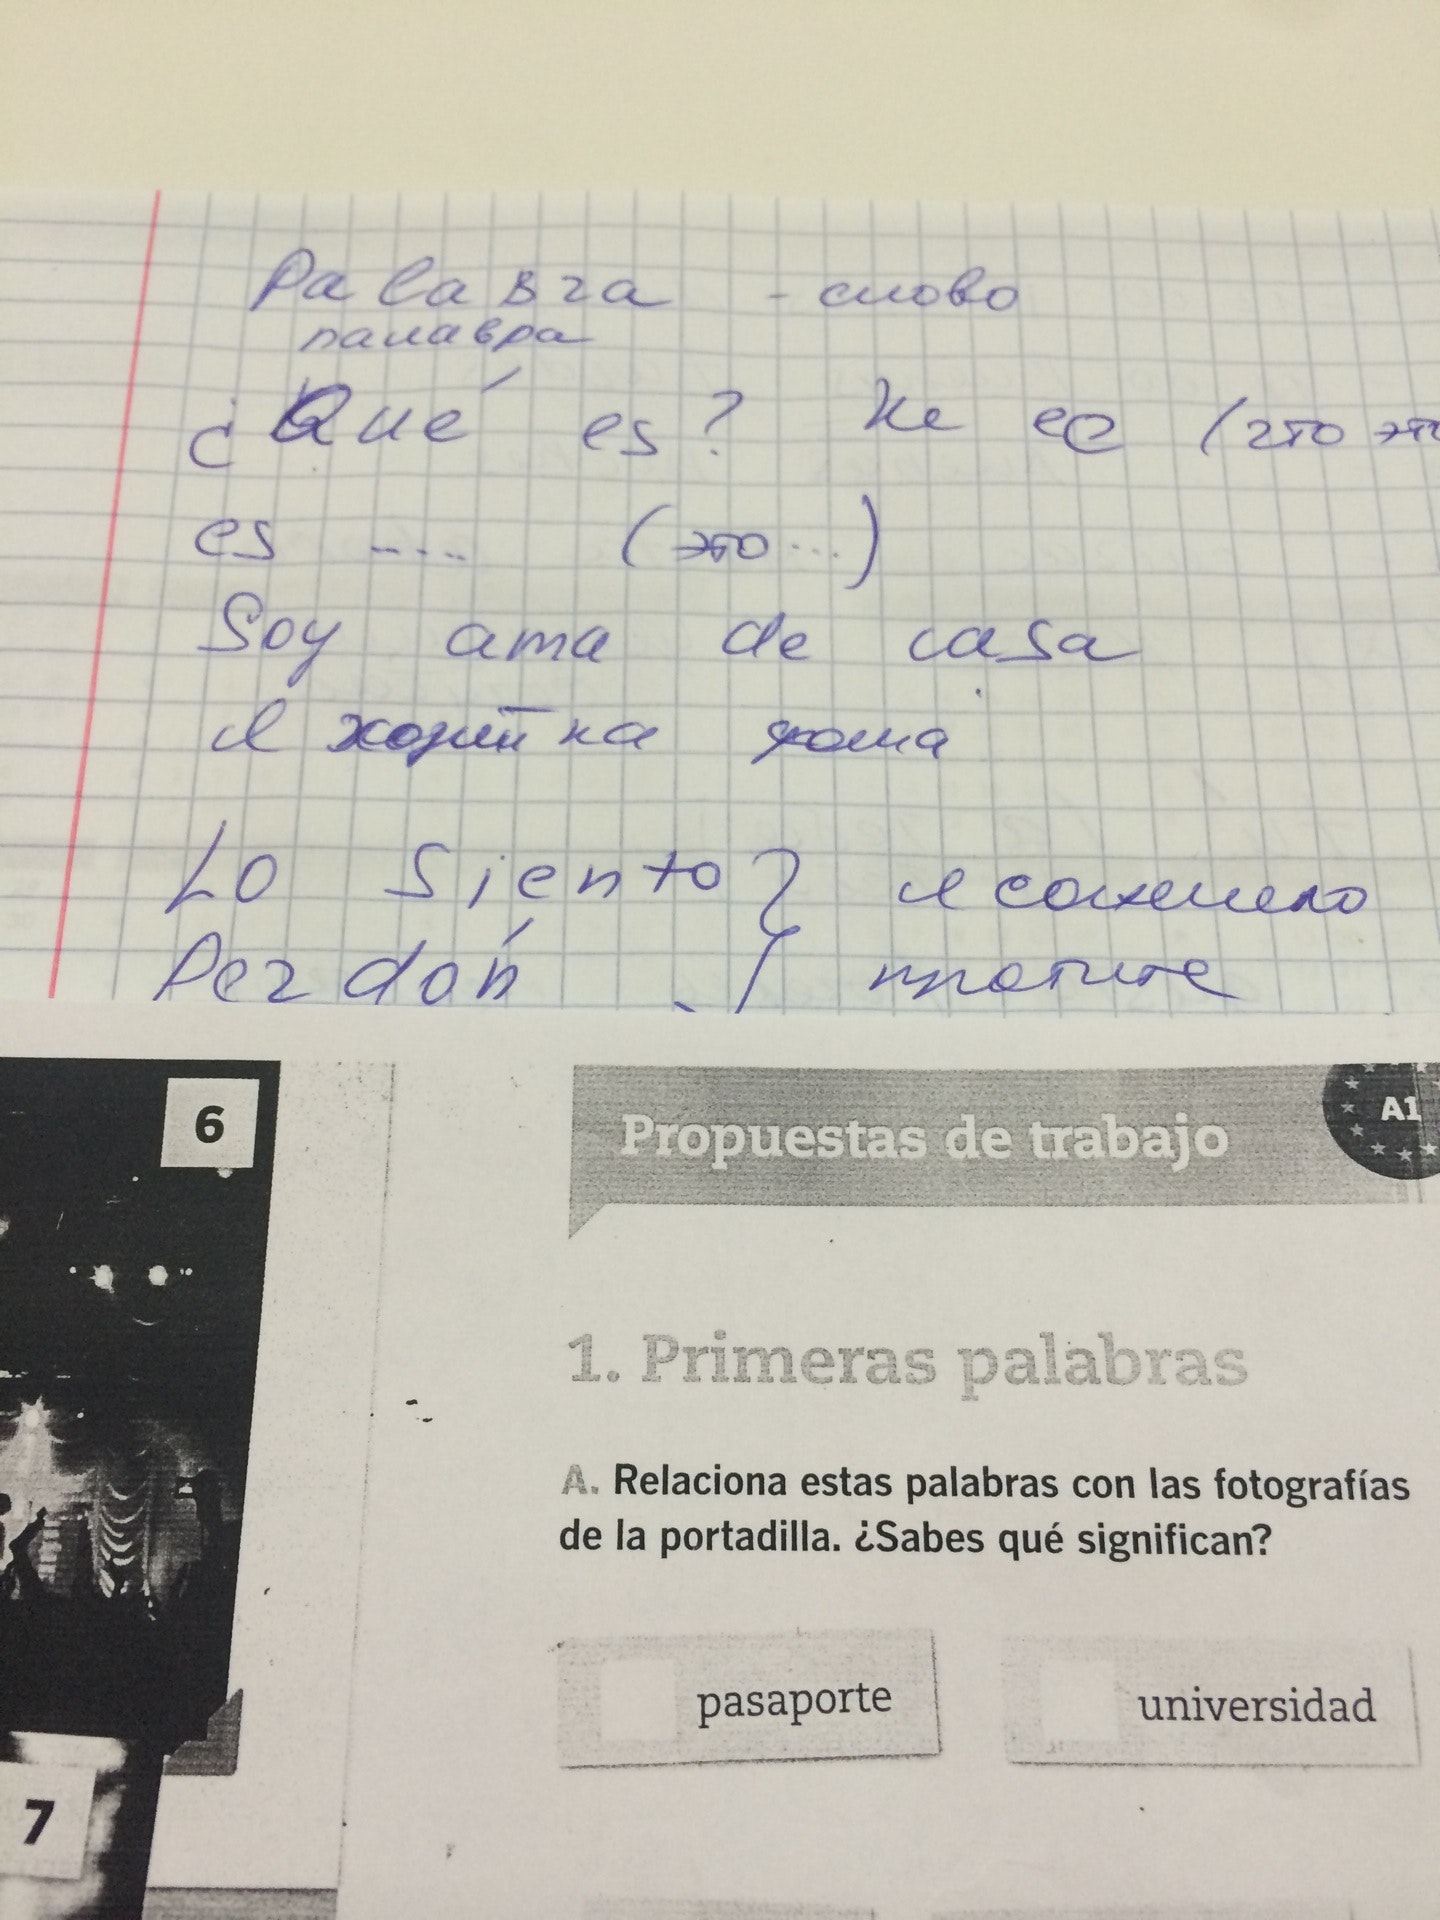 Palabra - слово
палавра
¿Qué es? Ке ес (что это
es .... (это ...)
Soy ama de casa
Я хозяйка дома
Lo siento } я сожалею
Perdón } простите
6
Propuestas de trabajo
A1
1. Primeras palabras
A. Relaciona estas palabras con las fotografías
de la portadilla. ¿Sabes qué significan?
pasaporte universidad
7